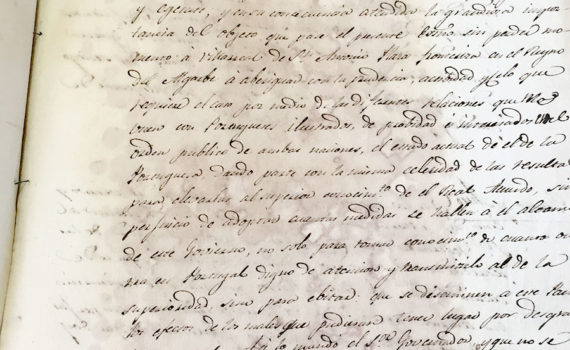 y egente, y en su consecuencia atendida la grandísima impor-
tancia del objeto que pase el presente Esno. sin perder mo-
mento a Villarreal de Sn. Antonio Para fronterisa en el Reyno
del Algarbe á aberiguar con la prudencia, actividad y celo que
requiere el caso por medio de las diferentes relaciones que
con Portugueses ilustrados, de probidad é interesados
orden publico de ambas naciones, el estado actual de el de la
Portuguesa dando parte con la misma celeridad de las resultas
para elevarlas al superior conocimto. de el Real Acuerdo, sin
perjuicio de adoptar cuantas medidas se hallen á el alcance
de este Govierno, no solo para tomar conocimto. de cuanto ocu-
rra en Portugal digno de atencion y transmitirlo al de la
superioridad sino para ebitar que se diseminen a este Pais
los efectos de los males que pudieran tener lugar por desgra-
lo mando el Sor. Governador, y que no se